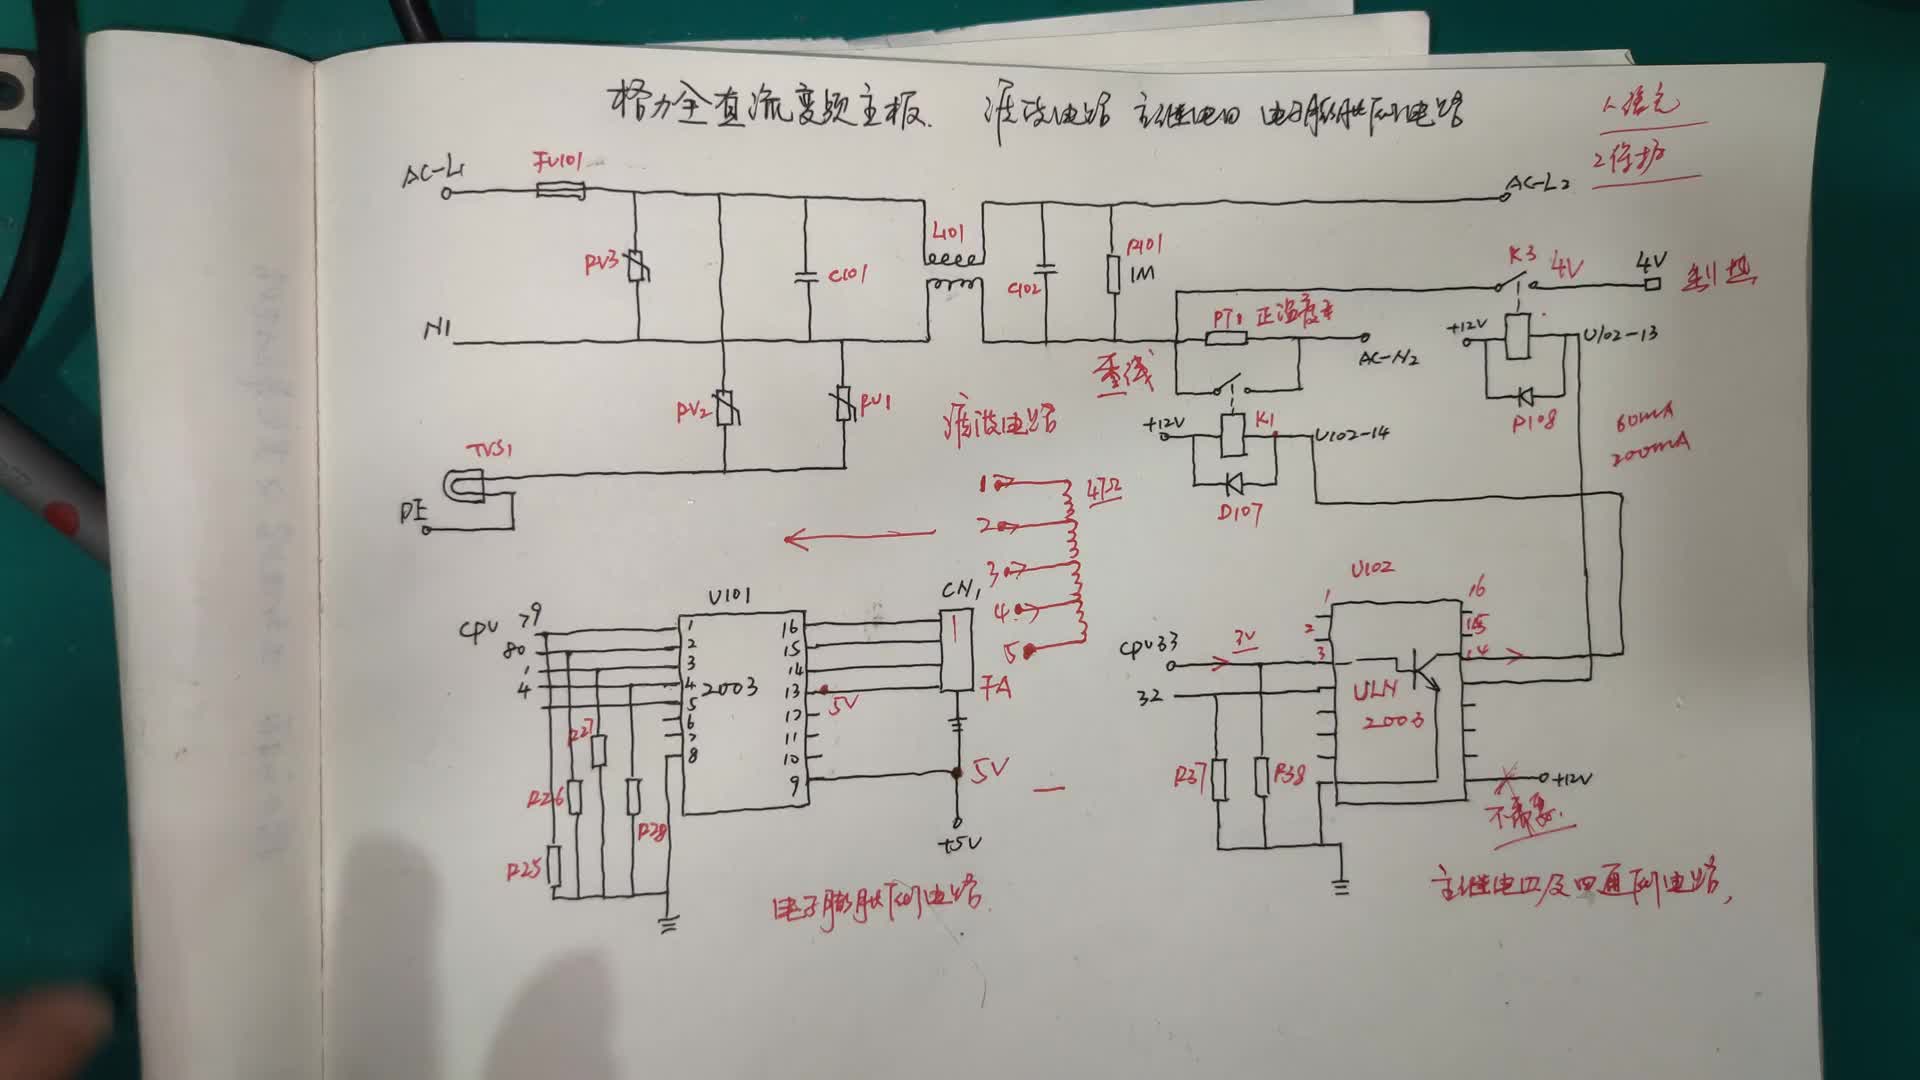 格力全直流变频主板. 滤波电路 主继电四 电子膨胀阀电路
1、
2保护
AC-L1
FU101
AC-L2
RV3
C101
L101
C102
R101
1M
K3
4V
4V
制热
N1
PT1
正温度
AC-N2
+12V
U102-13
D108
零线
RV2
RV1
滤波电路
+12V
K1
U102-14
D107
60mA
200mA
TVS1
PE
1
47Ω
2
3
4
5
CPU
79
80
1
4
U101
2003
1
2
3
4
5
6
7
8
16
15
14
13
12
11
10
9
5V
CN1
FA
5V
+5V
R27
R26
R28
R25
电子膨胀阀电路
U102
1
2
3
16
15
14
CPU33
3V
32
ULN
2003
R37
R38
+12V
不需要.
主继电四及四通阀电路,